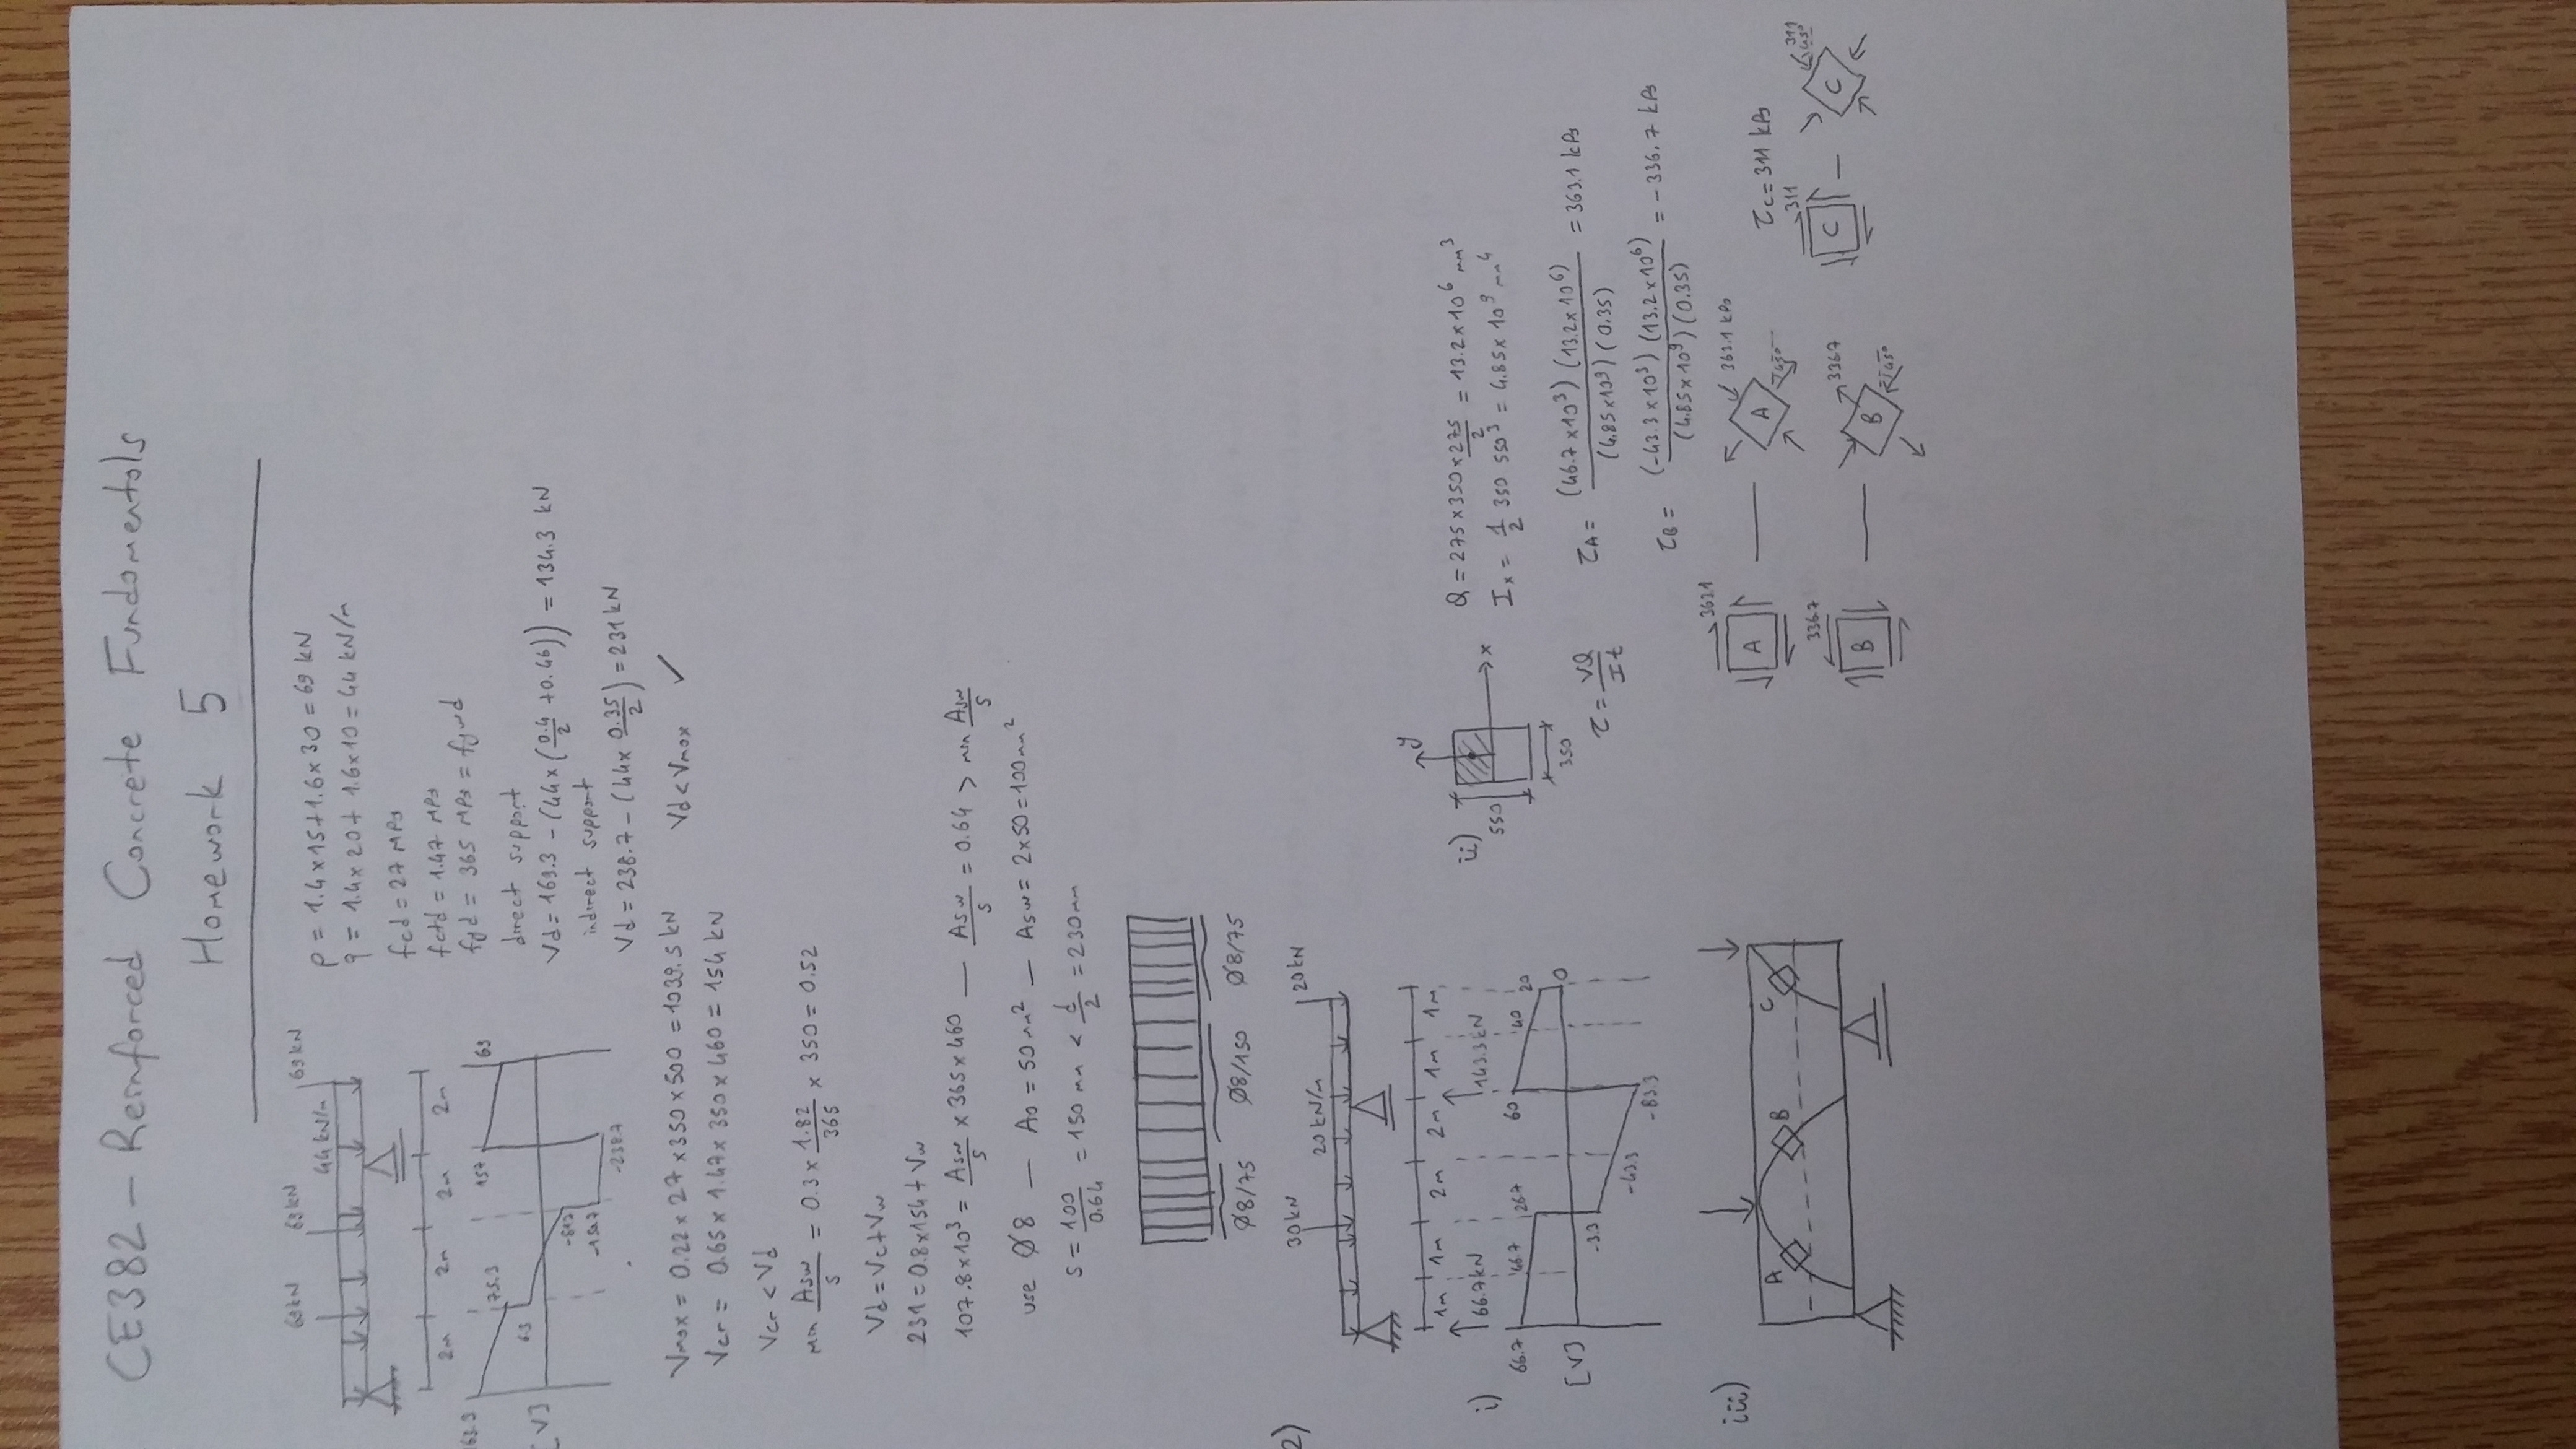 CE382 – Reinforced Concrete Fundamentals
Homework 5
69kN
69kN
69kN
44kN/m
2m
2m
2m
2m
63.3
75.3
63
-81.7
-150.7
157
69
-238.7
[V]
P = 1.4x15+1.6x30 = 69 kN
q = 1.4x20+1.6x10 = 44 kN/m
fcd = 27 MPa
fctd = 1.47 MPa
fyd = 365 MPa = fywd
direct support
Vd = 169.3 - (44x(0.4/2 + 0.46)) = 134.3 kN
indirect support
Vd = 238.7 - (44x 0.35/2) = 231 kN
Vmax = 0.22 x 27 x 350 x 500 = 1039.5 kN
Vd < Vmax ✓
Vcr = 0.65 x 1.47 x 350 x 460 = 154 kN
Vcr < Vd
min Asw/s = 0.3 x 1.82/365 x 350 = 0.52
Vd = Vc + Vw
231 = 0.8x154 + Vw
107.8x10³ = Asw/s x 365 x 460 — Asw/s = 0.64 > min Asw/s
use Ø8 — Ao = 50 mm² — Asw = 2x50 = 100mm²
s = 100/0.64 = 150 mm < d/2 = 230mm
Ø8/75
Ø8/150
Ø8/75
2)
30kN
20kN/m
20kN
1m
1m
2m
2m
1m
1m
66.7kN
143.3kN
i)
66.7
46.7
26.7
-3.3
-43.3
-83.3
60
40
20
0
[V]
ii)
y
x
550
350
τ = VQ/It
Q = 275x350x 275/2 = 13.2x10⁶ mm³
Ix = 1/2 350 550³ = 4.85x10⁹ mm⁴
τA = (46.7x10³)(13.2x10⁶)/(4.85x10⁹)(0.35) = 363.1 kPa
τB = (-43.3x10³)(13.2x10⁶)/(4.85x10⁹)(0.35) = -336.7 kPa
iii)
A
B
C
A
363.1
A
363.1 kPa
45°
B
336.7
B
336.7
45°
τC = 311 kPa
C
311
C
311
45°